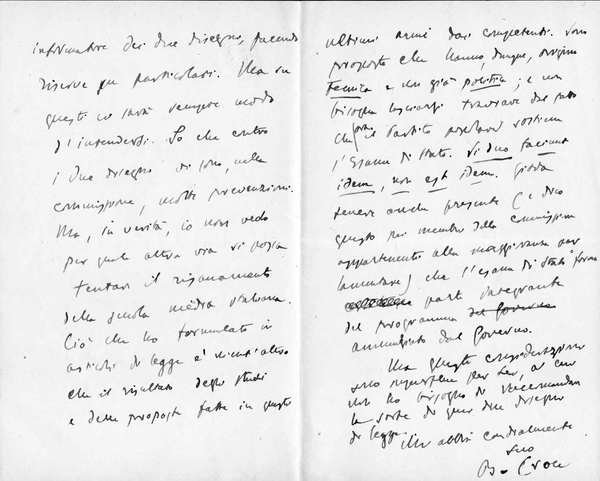 informatore dei due disegni, facendo
riserve pei particolari. Ma su
questi ci sarà sempre modo
d'intendersi. So che contro
i due disegni vi sono, nella
commissione, molte prevenzioni.
Ma, in verità, io non vedo
per quale altra via si possa
tentare il risanamento
della scuola media italiana.
Ciò che ho formulato in
articoli di legge è nient'altro
che il risultato degli studi
e delle proposte fatte in questi
ultimi anni dai competenti. Sono
proposte che hanno, dunque, origine
tecnica e non già politica; e non
bisogna lasciarsi traviare dal fatto
che il Partito popolare sostiene
l'Esame di Stato. Si duo faciunt
idem, non est idem. Giova
tenere anche presente (e dico
questo pei membri della Commissione
appartenenti alla maggioranza par
lamentare) che l'esame di Stato forma
parte integrante
del programma del Governo
annunziato dal Governo.
Ma queste considerazioni
sono superflue per Lei, a cui
non ho bisogno di raccomandare
la sorte di quei due disegni
di legge.
Mi abbia cordialmente
suo
B. Croce